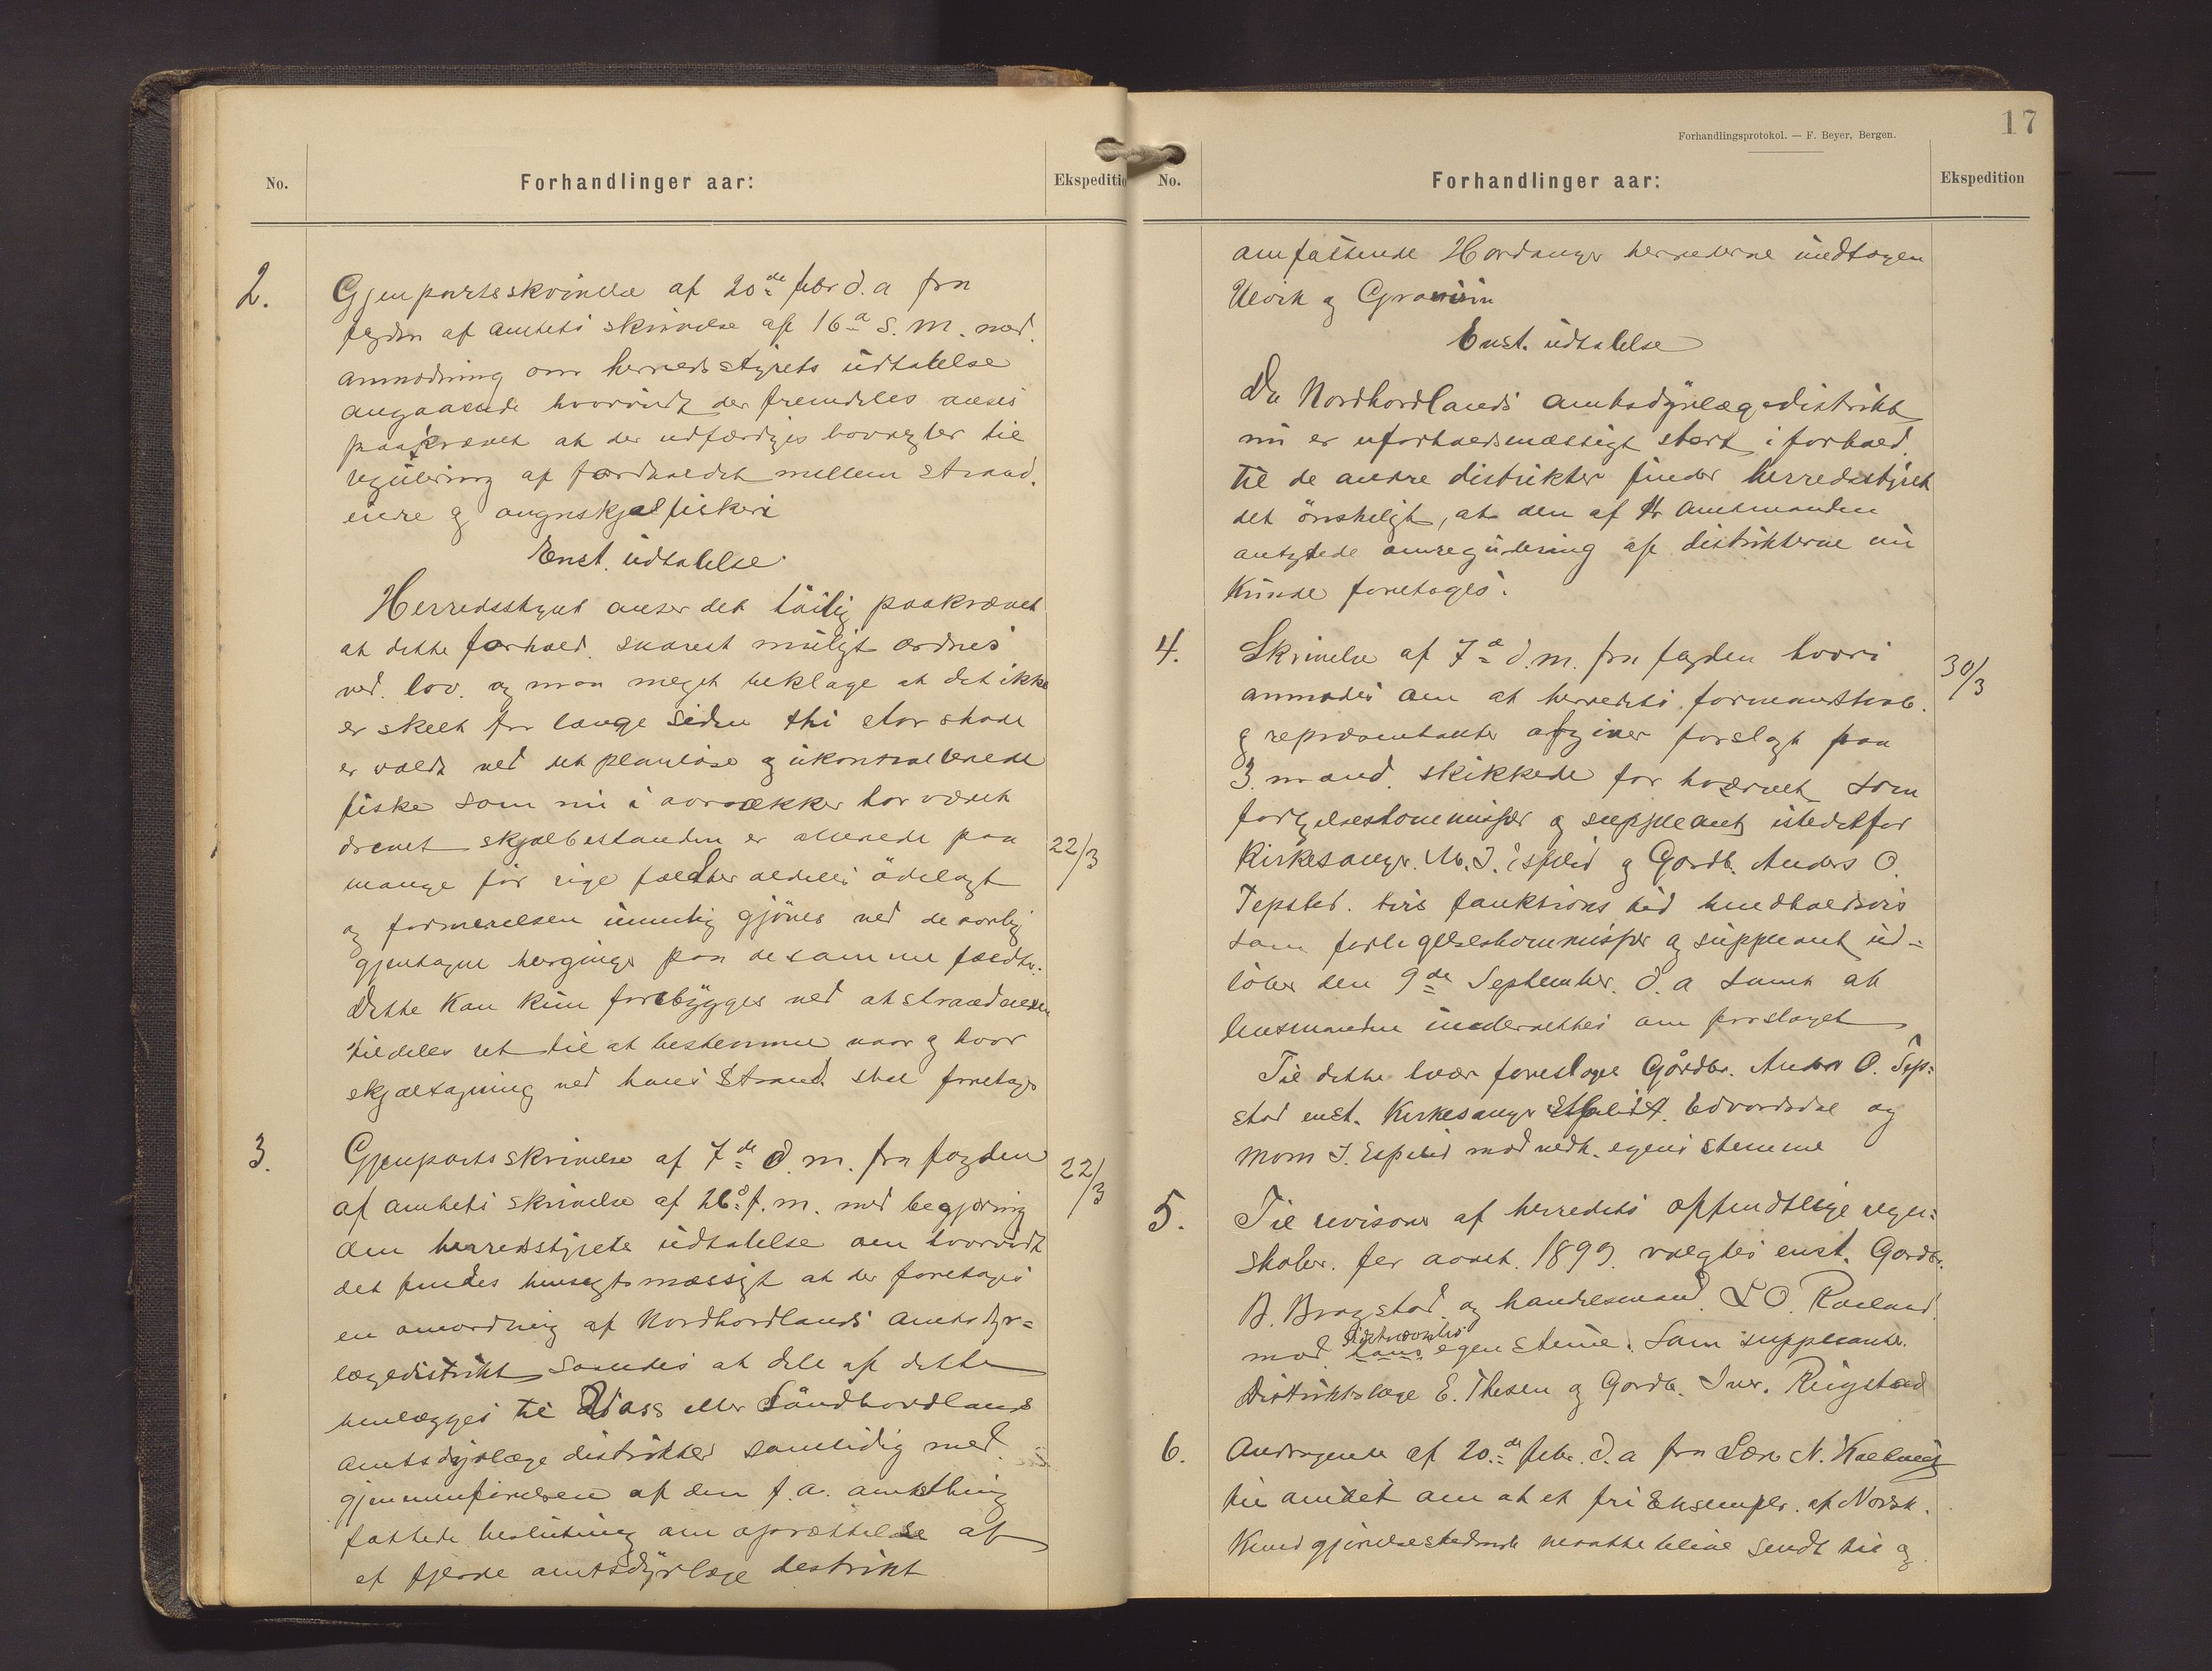 No.
Forhandlinger aar:
Ekspeditio
2.
Gjenpartsskrivelse af 20de febr d. a fra
fogden af amtets skrivelse af 16de s. m. med
anmodning om herredsstyrets udtalelse
angaaende hvorvidt der fremdeles ansees
paakrævet at der udfærdiges lovregler til
regulering af forholdet mellem strand-
eiere og angnskjælfiskeri
Enst. udtalelse
Herredsstyret anser det høilig paakrævet
at dette forhold snarest muligt ordnes
ved lov. og maa meget beklage at det ikke
er skeet for længe siden thi stor skade
er voldt ved det planløse og ukontrollerede
fiske som nu i aarrækker har været
drevet skjælbestanden er allerede paa
mange før rige fældter aldeles ødelagt
og formerelsen umulig gjøres ved de aarlig
gjentagne herginger paa de samme fældter.
Dette kan kun forebygges ved at strandeieren
tildeles ret til at bestemme naar og hvor
skjæltagning ved hans Strand skal foretages
22/3
3.
Gjenpartsskrivelse af 7de d. m. fra fogden
af amtets skrivelse af 26de f. m. med begjæring
om herredsstyrets udtalelse om hvorvidt
det findes hensigtsmæssigt at der foretages
en omordning af Nordhordlands amtsdyr=
lægedistrikt saaledes at dele af dette
henlægges til Voss eller Søndhordlands
amtsdyrlæge distrikter samtidig med
gjennemførelsen af den f. a. amtsthing
fattede beslutning om oprættelse af
et fjerde amtsdyrlæge destrikt
22/3
Forhandlingsprotokol. — F. Beyer, Bergen.
17
No.
Forhandlinger aar:
Ekspedition
omfattende Hardanger herrederne undtagen
Ulvik og Graven
Enst. udtalelse
Da Nordhordlands amtsdyrlægedistrikt
nu er uforholdsmæssigt stort i forhold
til de andre distrikter finder herredsstyret
det ønskeligt, at den af Hr Amtmanden
antydede omregulering af distrikterne nu
kunde foretages.
4.
Skrivelse af 7de d. m. fra fogden hvori
anmodes om at herredets formandskab
og repræsentanter afgiver forslag paa
3 mænd skikkede for hvervet som
forligelseskommissær og suppleant istedetfor
Kirkesanger M. J. Espelid og Gardb. Anders O.
Tepstad hvis funktions tid henholdsvis
som forligelseskommissær og suppleant ud=
løber den 9de September d. a samt at
lensmanden underrettes om forslaget
Til dette hver foresloges Gårdbr. Anders O. Tep=
stad enst. Kirkesanger A. Edvardsdal og
Mons J. Espelid mod vedk. egens stemme
30/3
5.
Til revisorer af herredets offendtlige regn=
skaber for aaret 1899 valgtes enst. Gardbr.
B. Bragstad og handelsmand L O. Kalland
sidstnævntes
mod hans egen stemme. Som suppleanter
Distriktslæge E. Thesen og Gardb. Iver. Rugstad
6.
Andragende af 20de febr. d. a fra Lær N.
til amtet om at et fri Eksempler af Norsk
Kundgjørelsestidende maatte blive sendt til og